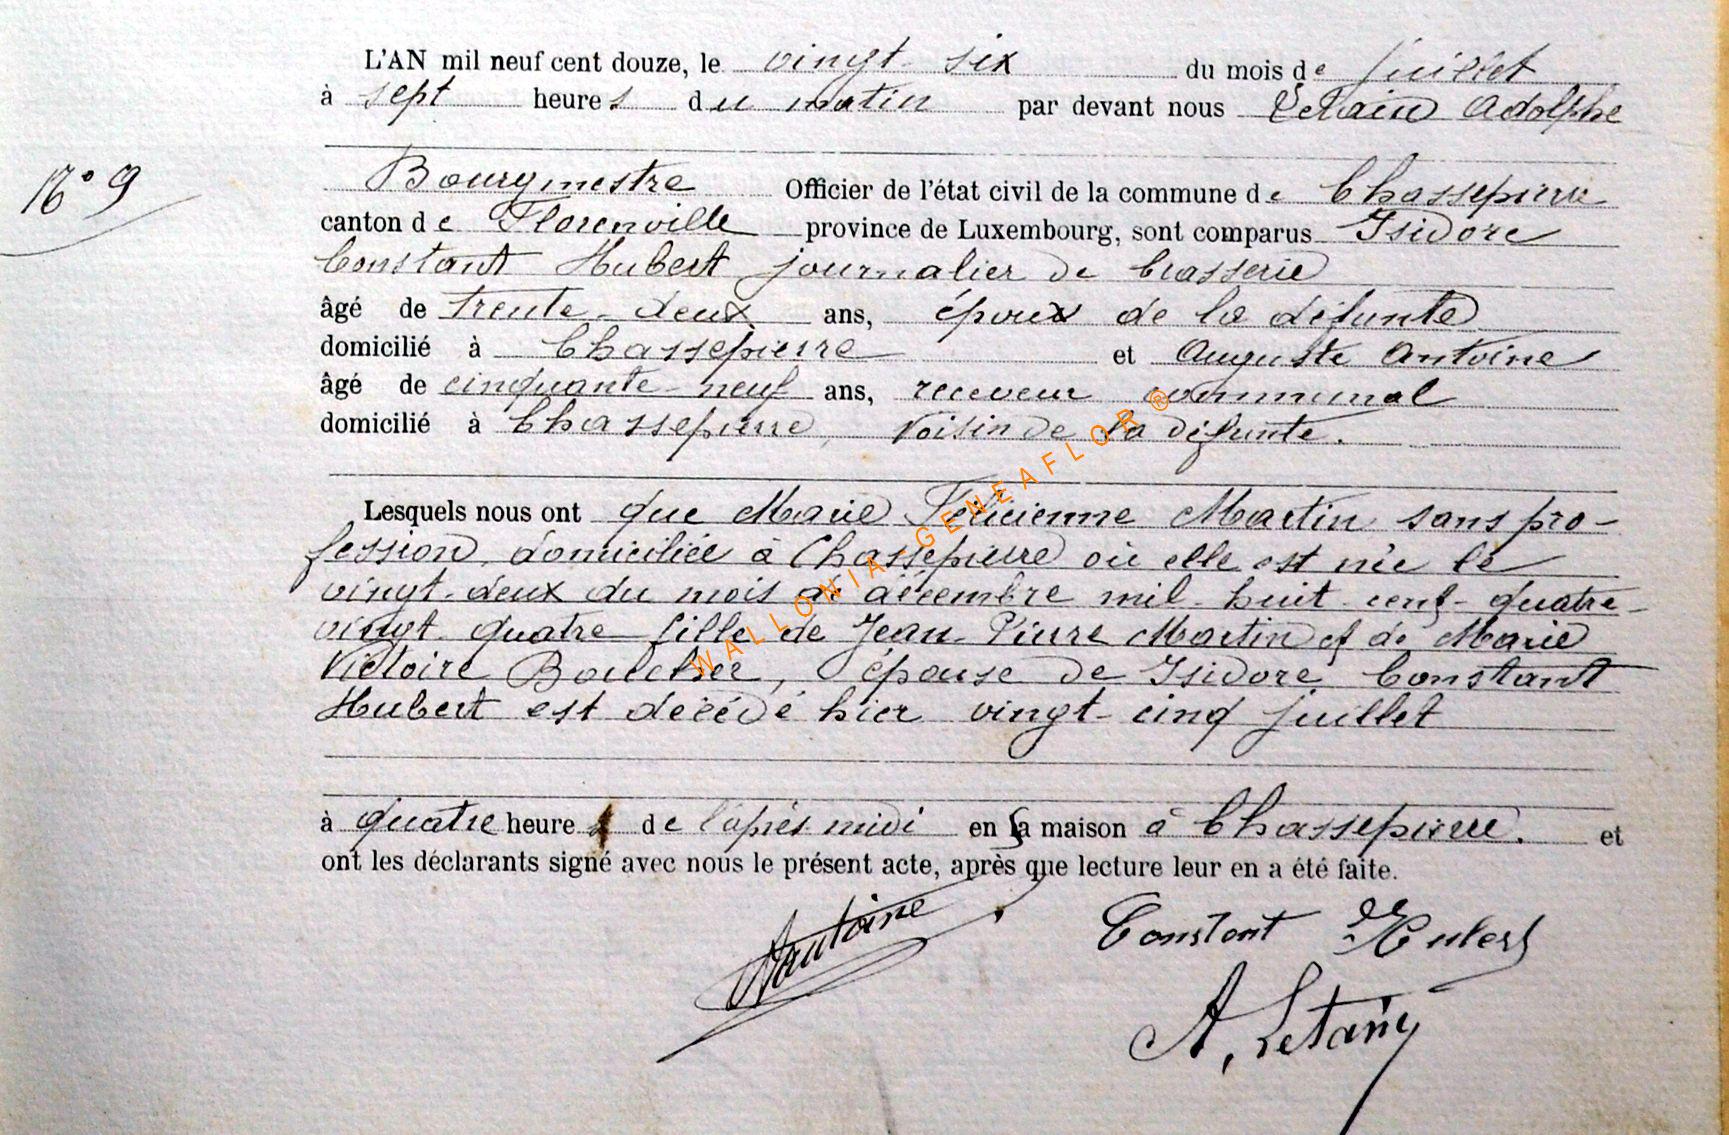 L'AN mil neuf cent douze, le vingt-six du mois de juillet
à sept heures du matin par devant nous Letain Adolphe
N° 9
Bourgmestre Officier de l'état civil de la commune de Chassepierre
canton de Florenville province de Luxembourg, sont comparus Isidore
Constant Hubert journalier de brasserie
âgé de trente-deux ans, époux de la défunte
domicilié à Chassepierre et Auguste Antoine
âgé de cinquante-neuf ans, receveur communal
domicilié à Chassepierre, voisin de la défunte.
Lesquels nous ont que Marie Félicienne Martin sans pro-
fession, domiciliée à Chassepierre où elle est née le
vingt-deux du mois de décembre mil-huit-cent-quatre-
vingt-quatre fille de Jean-Pierre Martin et de Marie
Victoire Boucher, épouse de Isidore Constant
Hubert est décédé hier vingt-cinq juillet
à quatre heures de l'après midi en sa maison à Chassepierre. et
ont les déclarants signé avec nous le présent acte, après que lecture leur en a été faite.
Aantoine
Constant Hubert
A. Letain
WALLONIA-GENEAFLOR®